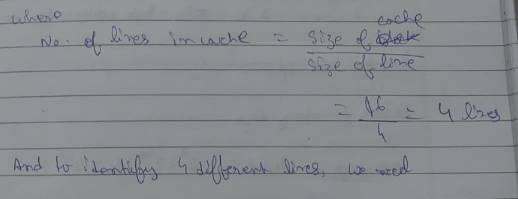 where
No. of lines in cache = Size of cache
Size of line
= 16 = 4 lines
4
And to identify 4 different lines, we need